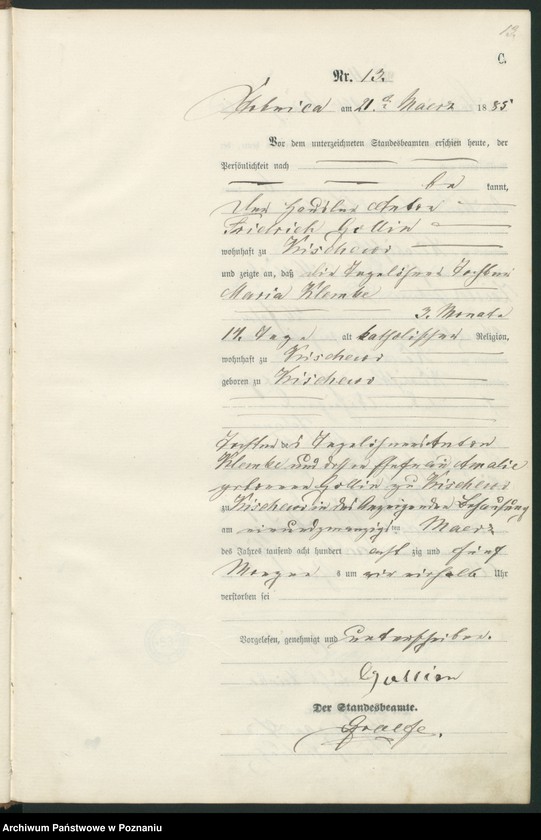 13
C.
Nr. 13.
am 21. Maerz 1885
Vor dem unterzeichneten Standesbeamten erschien heute, der
Persönlichkeit nach
be kannt,
der Häusler Anton
Friedrich Gollin
wohnhaft zu Kischewo
und zeigte an, daß die Tagelöhner Tochter
Maria Klembe
3. Monate
14. Tage alt katholischer Religion,
wohnhaft zu Kischewo
geboren zu Kischewo
Tochter des Tagelöhners Anton
Klembe und dessen Ehefrau, Amalie
geborene Gollin zu Kischewo
zu Kischewo in des Anzeigenden Behausung
am einundzwanzigsten Maerz
des Jahres tausend acht hundert acht zig und fünf
Morgens um Uhr
verstorben sei
Vorgelesen, genehmigt und unterschrieben.
Gollin
Der Standesbeamte.
Archiwum Państwowe w Poznaniu